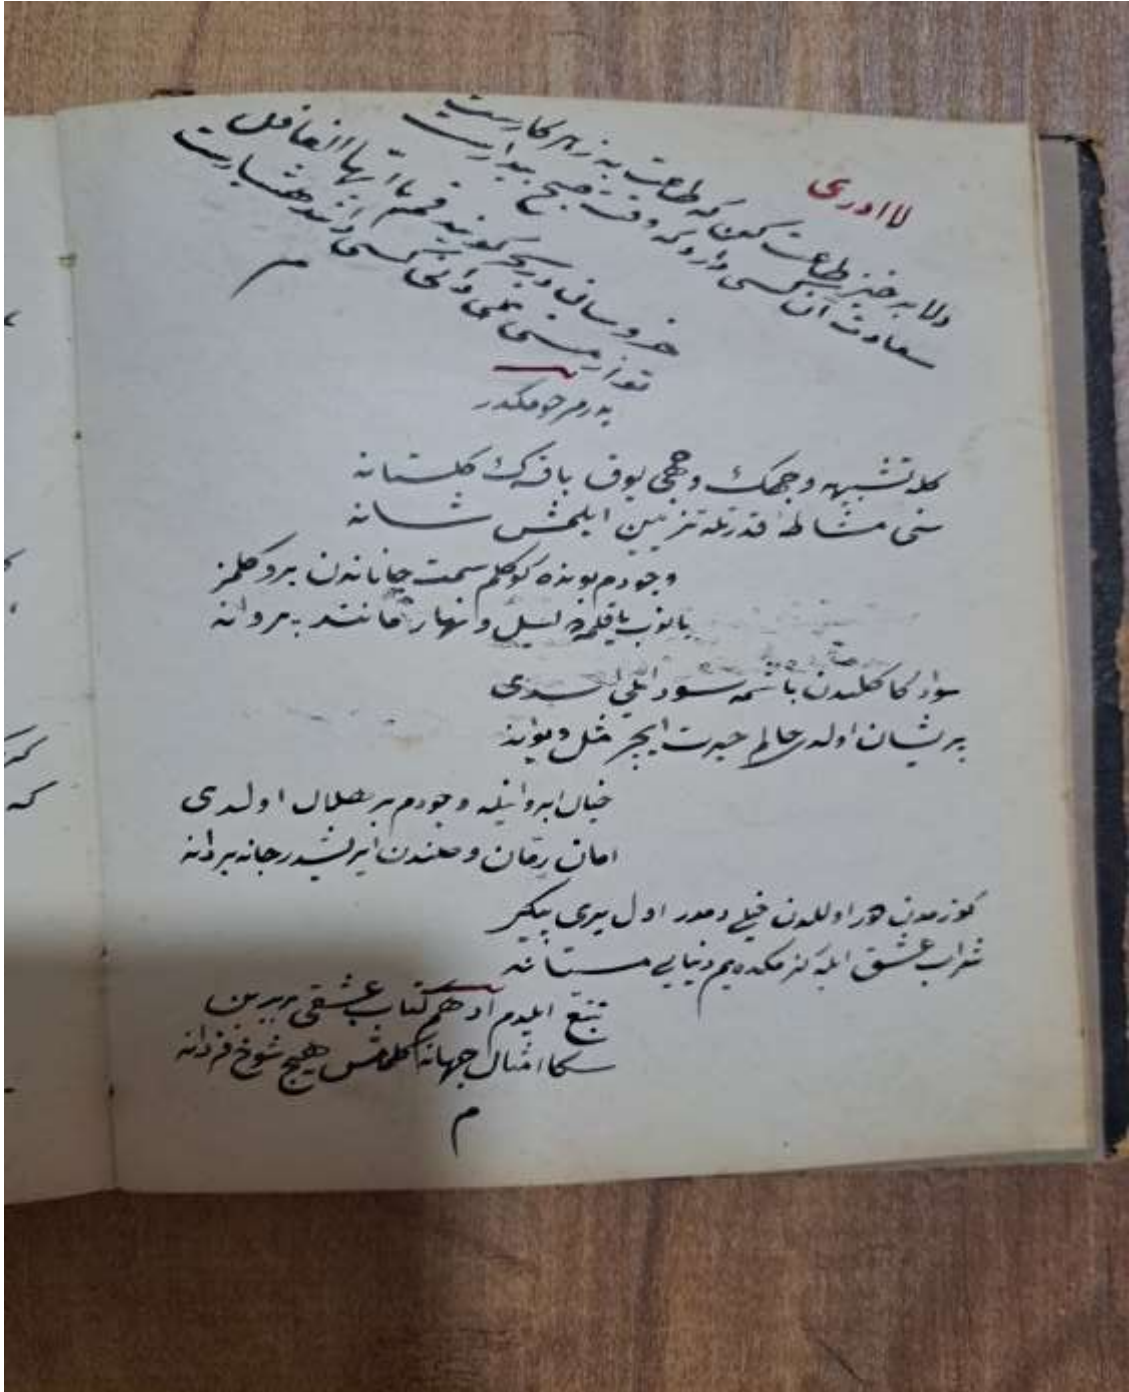 لا ادری
دلا بر خیز طاعت کن که طاعت به ز هر کارست
سعادت آن کسی دارد که وقت صبح بیدارست
خروسان در سحر کویند قم یا ایها الغافل
تو از مستی نمی دانی کسی داند هشیارست
م
پدر مرحومکدر
کله تشبیه وجهک وجهی یوق باقدک کلستانه
سنی مشاطهٔ قدرتله تزیین ایلمش شانه
وجودم بونده کوکلم سمت جاناندن برو کلمز
یانوب یاقلمده لیل و نهار مانند پروانه
سواد کاکلندن باشمه سودایلی اسدی
پریشان اولدر حالم حیرت ایچره مثل دیوانه
خیال ابروانیله وجودم بر هلال اولدی
امان وصلندن ایرلشدر جانه بردانه
کوزمدن دور اوللدن خیلی دمدر اول پری پیکر
شراب عشق ایله کزمکده یم دنیایی مستانه
تتبع ایلدم ادهم کتاب عشقی بربرین
سکا امثال جهانه کلمامش هیچ شوخ فردانه
م